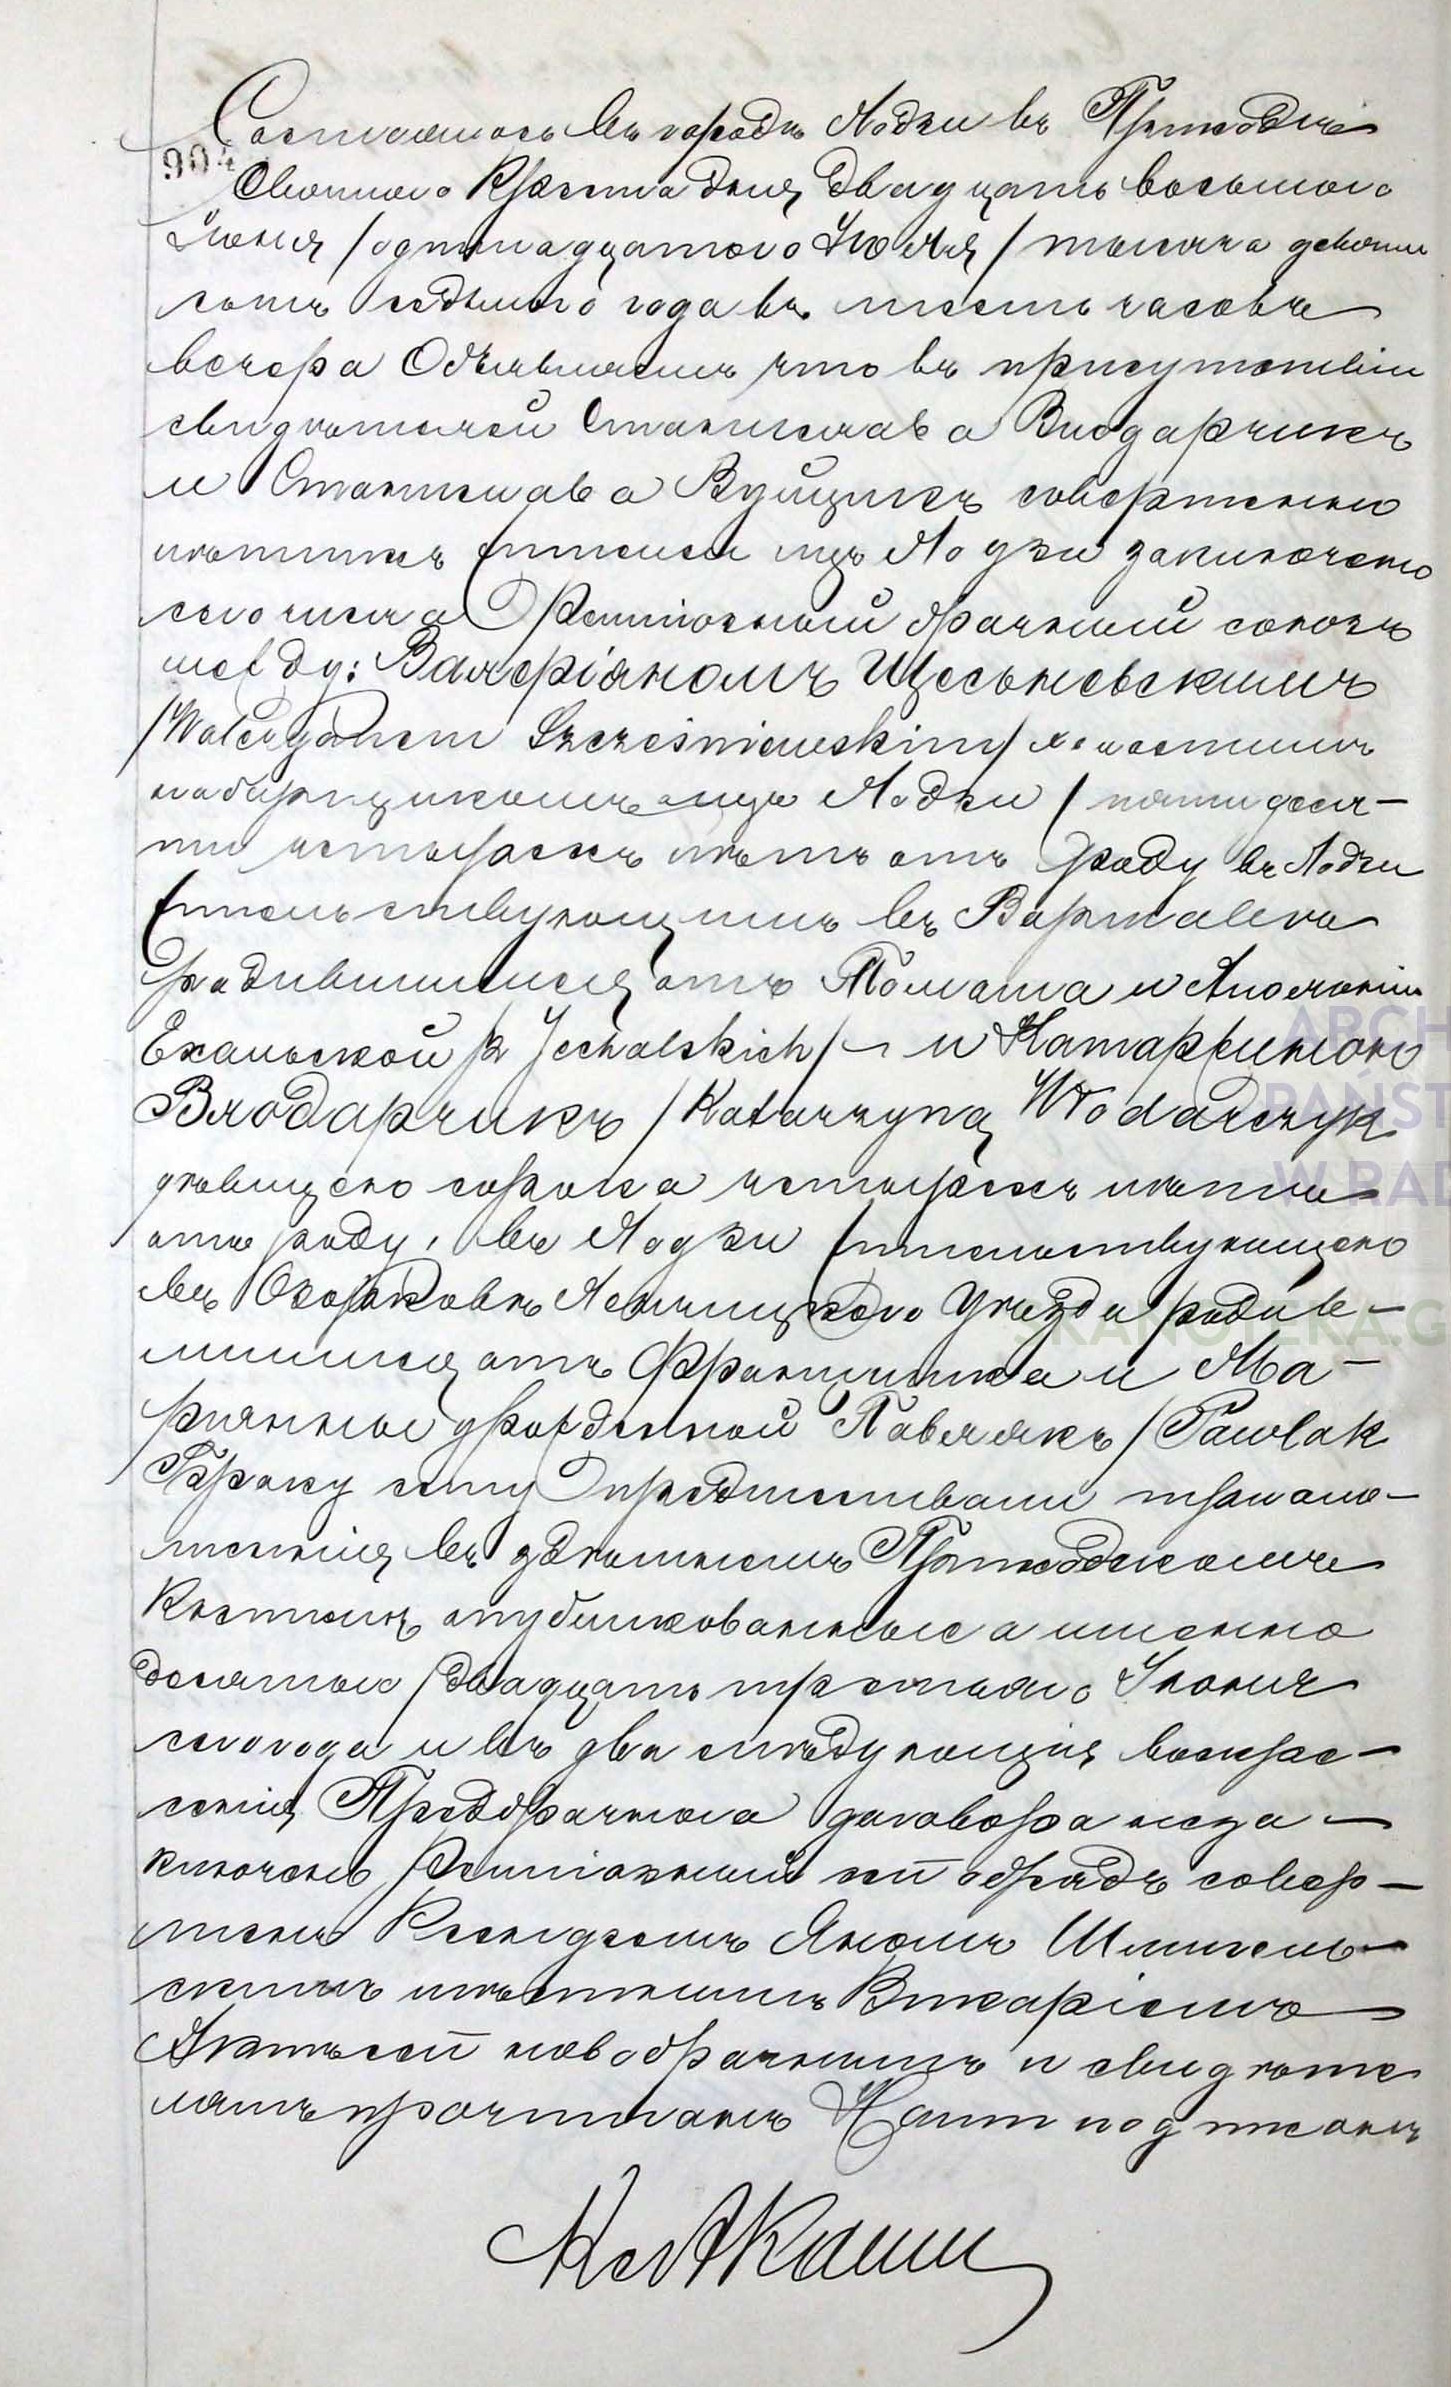 Состоялось въ городѣ Лодзи въ Приходѣ
904
Святаго Креста дня двадцать восьмого
Іюня /одинадцатого Іюля/ тысяча девять
сотъ седьмого года въ шесть часовъ
вечера Объявляемъ что въ присутствіи
свидѣтелей Станислава Влодарчикъ
и Станислава Вуйцикъ совершенно
лѣтнихъ жителей изъ Лодзи заключено
сего числа Религіозный брачный союзъ
между: Валеріяномъ Щесьневскимъ
/Waleryanem Szcześniewskim/ холостымъ
изъ Лодзи / пятидеся-
ти четырехъ лѣтъ отъ роду въ Лодзи
жительствующимъ въ Варшавѣ
родившимся отъ Томаша и Аполоніи
Ехальской /z Jechalskich/ и Катаржиною
Влодарчикъ /Katarzyną Włodarczyk
дѣвицею сорока четырехъ лѣтъ
отъ роду, въ Лодзи жительствующею
въ Озорковѣ Ленчицкого Уѣзда родив-
шимся отъ Францишка и Ма-
ріянны урожденной Павлякъ /Pawlak
Браку сему предшествовали три огла-
шенія въ здѣшнемъ Приходскомъ
Костелѣ опубликованные а именно
десятые /двадцать третьяго Іюня
сего года и въ два слѣдующія воскре-
сенія Предбрачнаго договора неза-
ключено Религіозный сей обрядъ совер-
шенъ Ксендземъ Яномъ Шмигель-
скимъ мѣстнымъ Викаріемъ
Актъ сей новобрачнымъ и свидѣте
лямъ прочитанъ Нами подписанъ